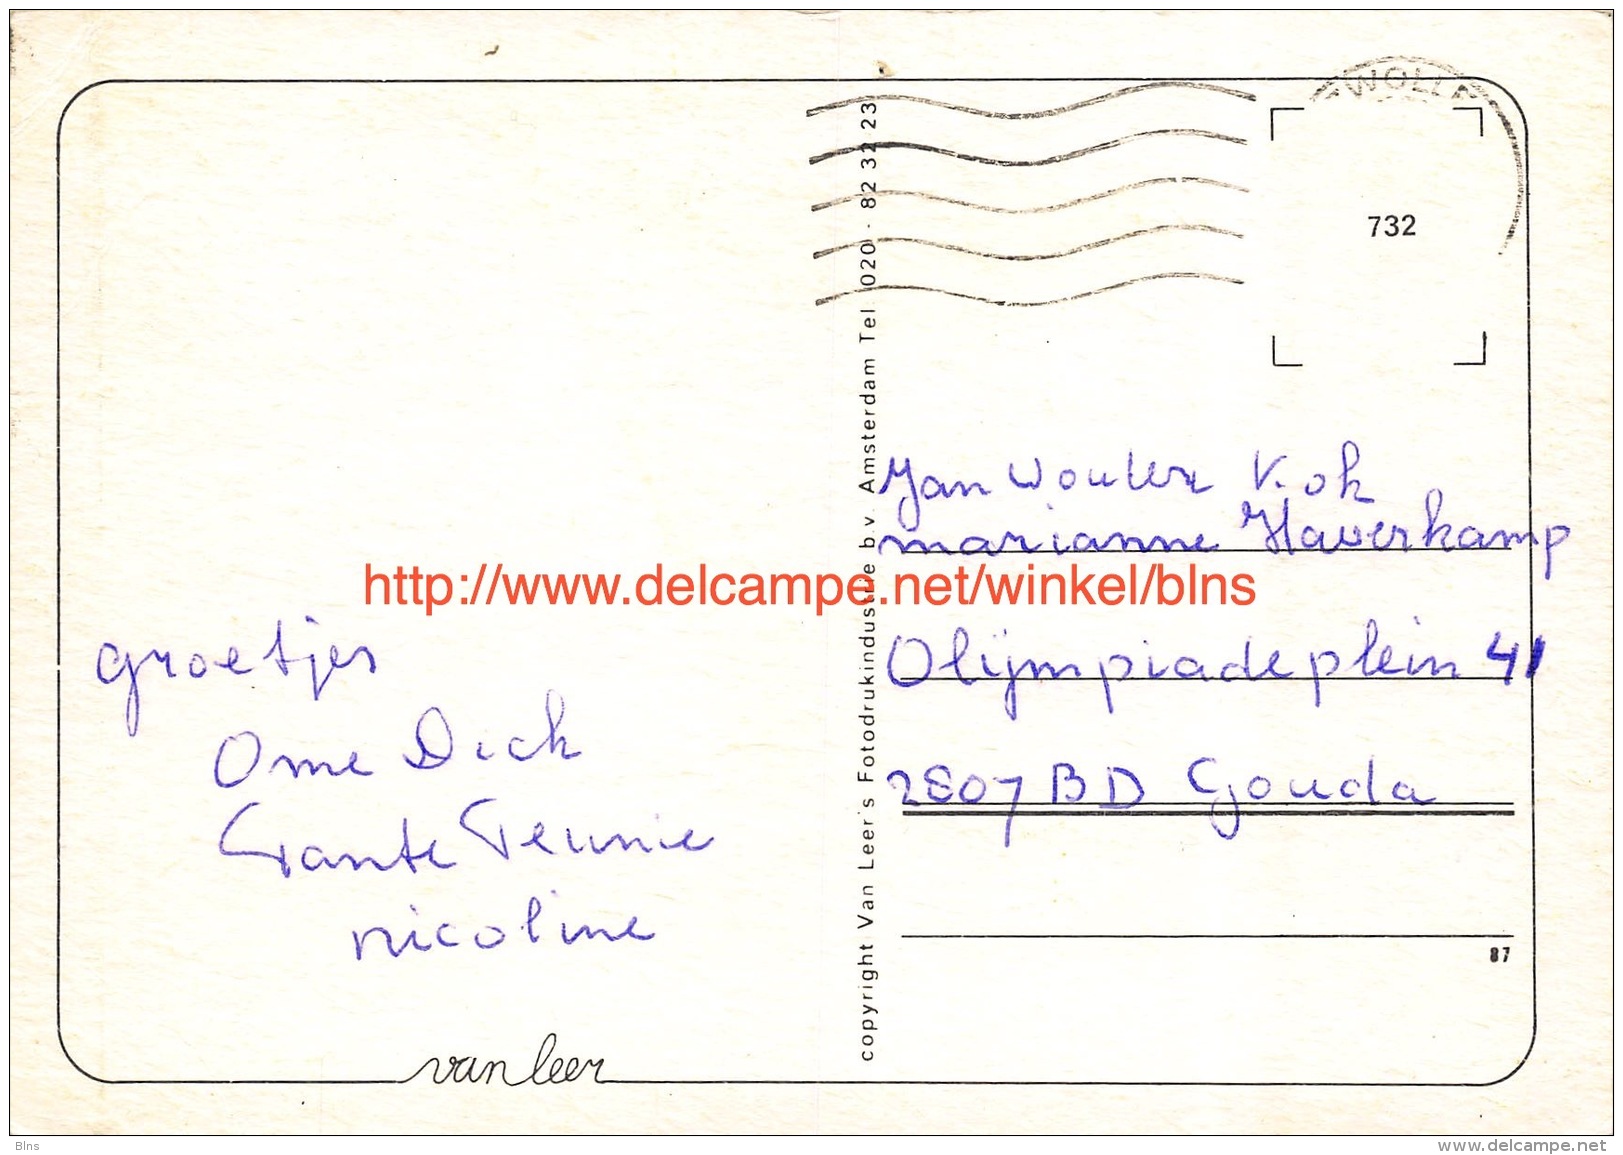 WOLL
732
copyright Van Leer's Fotodrukindustrie b.v. Amsterdam Tel 020 - 82 32 23
Jan Wouter Kok
marianne Haverkamp
Olijmpiadeplein 41
2807 BD Gouda
http://www.delcampe.net/winkel/blns
groetjes
Ome Dick
Tante Teunie
nicoline
87
van leer
Blns
www.delcampe.net